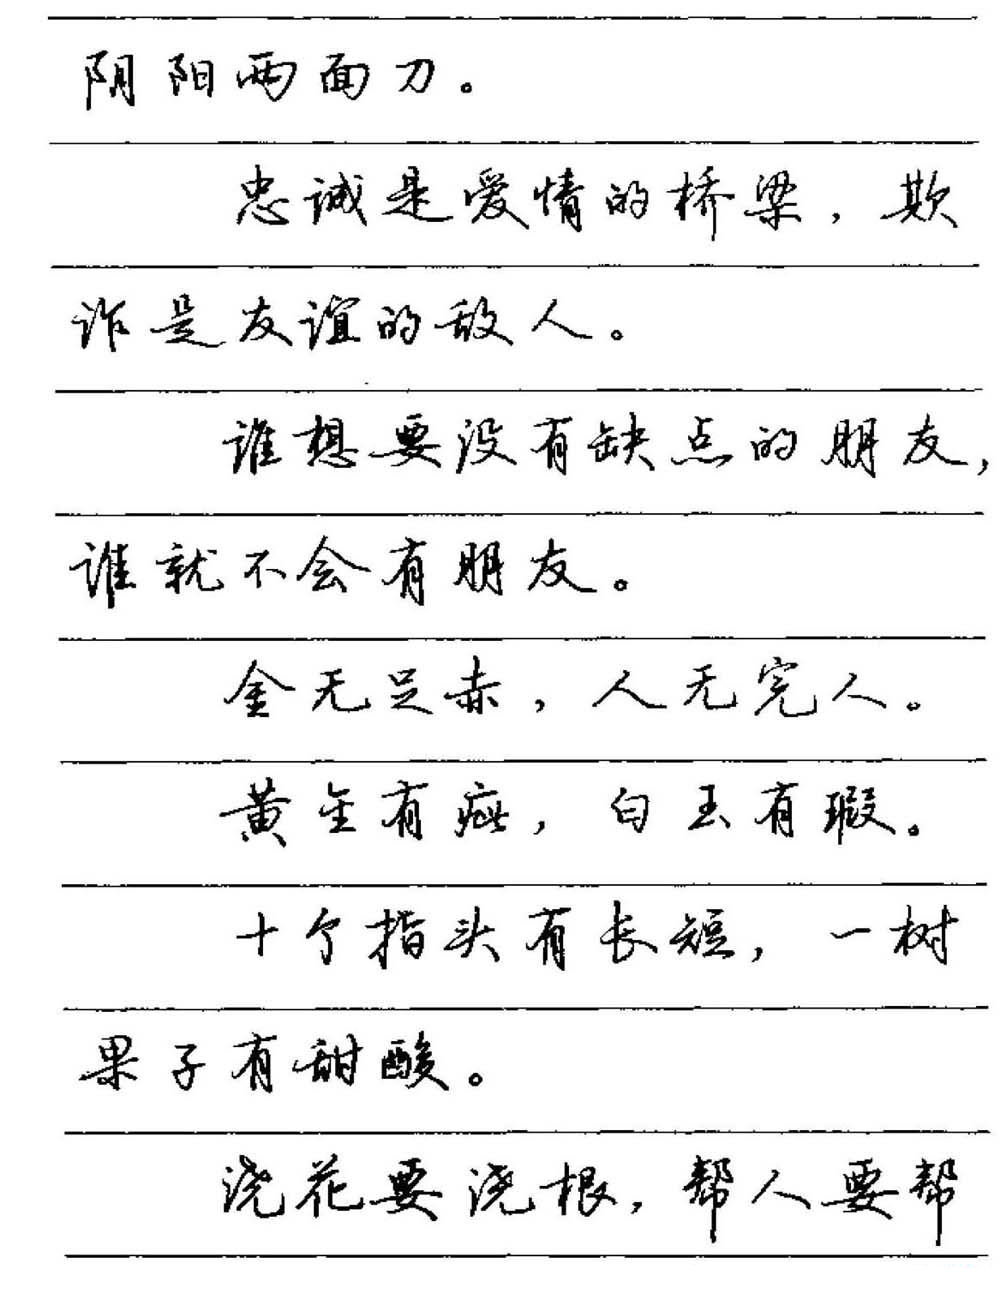 阴阳两面刀。
忠诚是爱情的桥梁，欺
诈是友谊的敌人。
谁想要没有缺点的朋友，
谁就不会有朋友。
金无足赤，人无完人。
黄金有疵，白玉有瑕。
十个指头有长短，一树
果子有甜酸。
浇花要浇根，帮人要帮